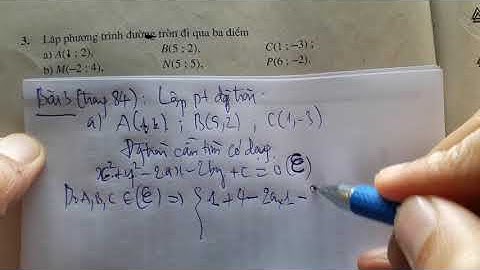 3. Lập phương trình đường tròn đi qua ba điểm
a) A(1 ; 2), B(5 ; 2), C(1 ; −3) ;
b) M(−2 ; 4), N(5 ; 5), P(6 ; −2).
Bài 3 (trang 84): Lập pt đg tròn
a) A(1,2) ; B(5,2) , C(1,−3)
Đg tròn cần tìm có dạng
x²+y²−2ax−2by+c=0 (C)
Do A,B,C ∈ (C) ⇒ { 1+4−2a.1−